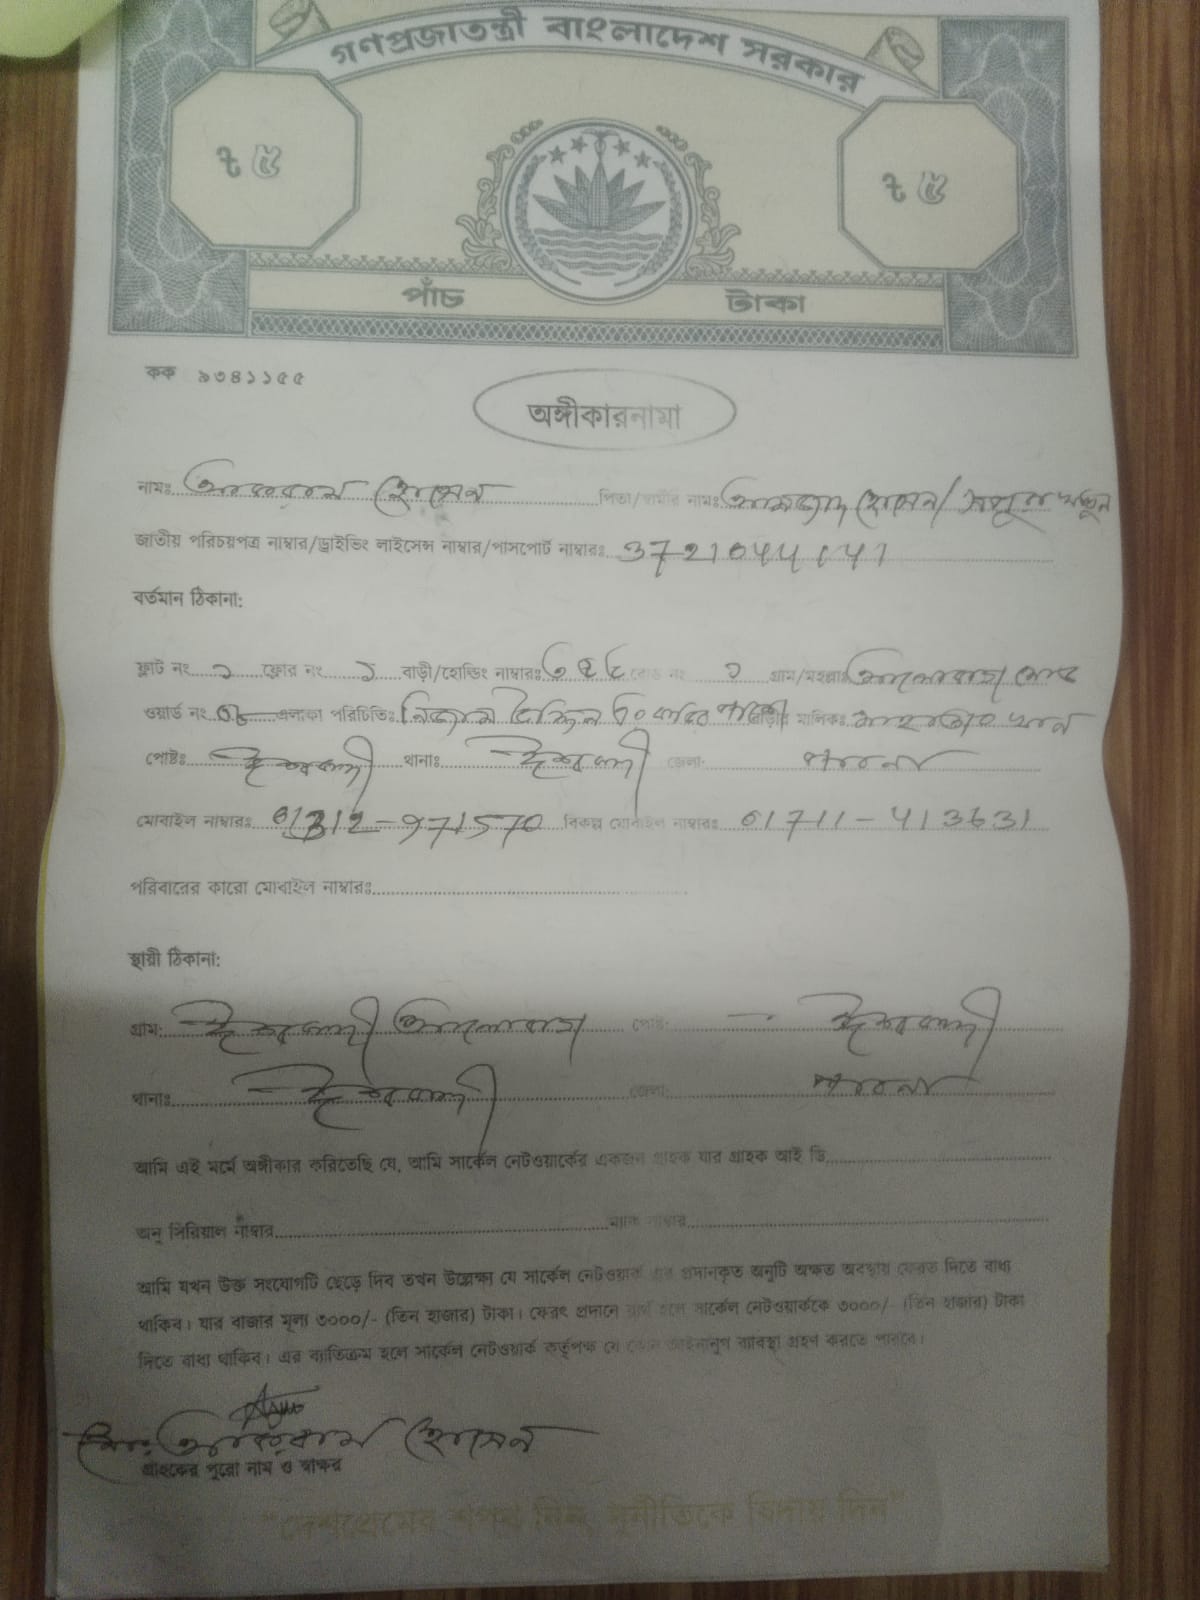 গণপ্রজাতন্ত্রী বাংলাদেশ সরকার
৳ ৫ ৳ ৫
পাঁচ টাকা
কক ৯৩৪১১৫৫
অঙ্গীকারনামা
নামঃ আকরাম হোসেন পিতা/স্বামীর নামঃ আমজাদ হোসেন/
জাতীয় পরিচয়পত্র নাম্বার/ড্রাইভিং লাইসেন্স নাম্বার/পাসপোর্ট নাম্বারঃ
বর্তমান ঠিকানা:
ফ্লাট নং ১ ফ্লোর নং ১ বাড়ী/হোল্ডিং নাম্বারঃ রোড নং ১ গ্রাম/মহল্লাঃ আলোবাগ মোড়
ওয়ার্ড নং ০৮ এলাকা পরিচিতিঃ মালিকঃ খান
পোষ্টঃ ঈশ্বরদী থানাঃ ঈশ্বরদী জেলা: পাবনা
মোবাইল নাম্বারঃ 01312-971570 বিকল্প মোবাইল নাম্বারঃ 01711-413631
পরিবারের কারো মোবাইল নাম্বারঃ
স্থায়ী ঠিকানা:
গ্রাম: ঈশ্বরদী আলোবাগ পোষ্ট: ঈশ্বরদী
থানাঃ ঈশ্বরদী জেলা: পাবনা
আমি এই মর্মে অঙ্গীকার করিতেছি যে, আমি সার্কেল নেটওয়ার্কের একজন গ্রাহক যার গ্রাহক আই ডি
অনু সিরিয়াল নাম্বার ম্যাক নাম্বার
আমি যখন উক্ত সংযোগটি ছেড়ে দিব তখন উল্লেক্ষা যে সার্কেল নেটওয়ার্ক এর প্রদানকৃত অনুটি অক্ষত অবস্থায় ফেরত দিতে বাধ্য
থাকিব। যার বাজার মূল্য ৩০০০/- (তিন হাজার) টাকা। ফেরৎ প্রদানে ব্যর্থ হলে সার্কেল নেটওয়ার্ককে ৩০০০/- (তিন হাজার) টাকা
দিতে বাধ্য থাকিব। এর ব্যতিক্রম হলে সার্কেল নেটওয়ার্ক কর্তৃপক্ষ যে কোন আইনানুগ ব্যবস্থা গ্রহণ করতে পারবে।
মোঃ আকরাম হোসেন
গ্রাহকের পুরো নাম ও স্বাক্ষর
"দেশপ্রেমের শপথ নিন, দুর্নীতিকে বিদায় দিন"